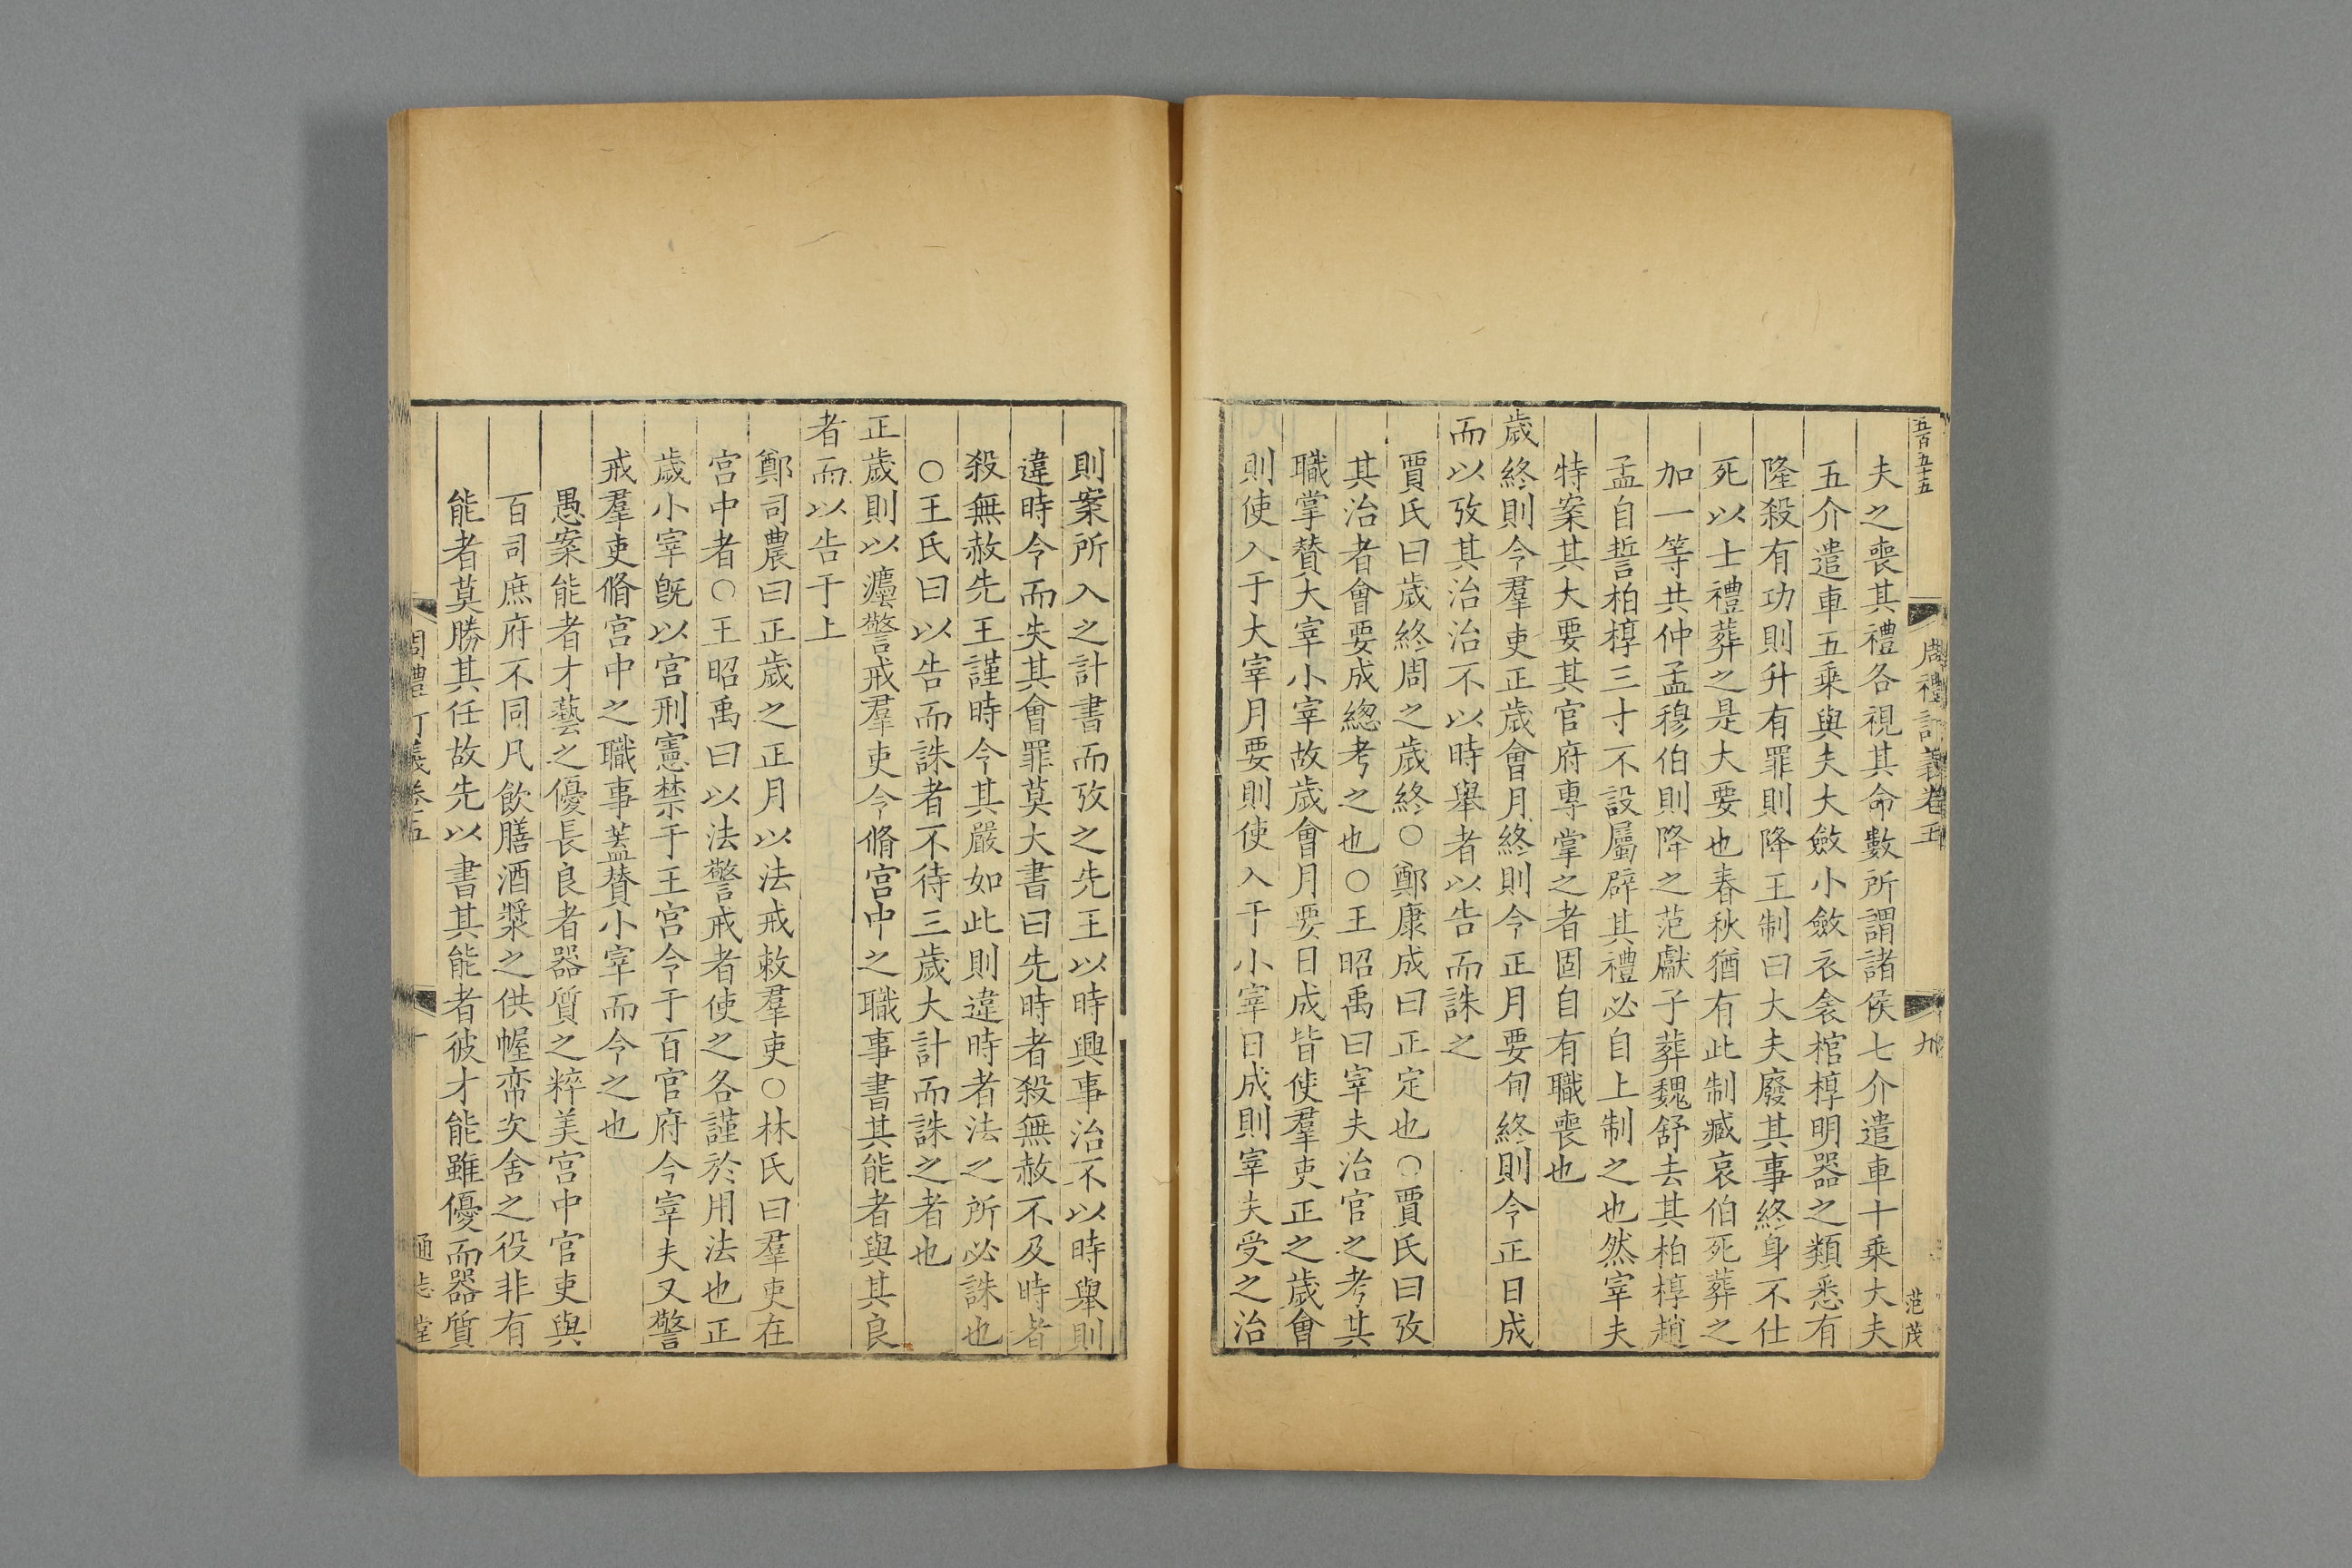 五百五十五 周禮訂義卷五 九 范茂
夫之喪其禮各視其命數所謂諸侯七介遣車十乘大夫
五介遣車五乘與夫大斂小斂衣衾棺椁明器之類悉有
隆殺有功則升有罪則降王制曰大夫廢其事終身不仕
死以士禮葬之是大要也春秋猶有此制臧哀伯死葬之
加一等共仲孟穆伯則降之范獻子葬魏舒去其柏椁趙
孟自誓柏椁三寸不設屬辟其禮必自上制之也然宰夫
特案其大要其官府專掌之者固自有職喪也
歲終則令羣吏正歲會月終則令正月要旬終則令正日成
而以攷其治治不以時舉者以告而誅之
賈氏曰歲終周之歲終○鄭康成曰正定也○賈氏曰攷
其治者會要成緫考之也○王昭禹曰宰夫治官之考其
職掌賛大宰小宰故歲會月要日成皆使羣吏正之歲會
則使入于大宰月要則使入于小宰日成則宰夫受之治
則案所入之計書而攷之先王以時興事治不以時舉則
違時令而失其會罪莫大書曰先時者殺無赦不及時者
殺無赦先王謹時令其嚴如此則違時者法之所必誅也
○王氏曰以告而誅者不待三歲大計而誅之者也
正歲則以灋警戒羣吏令脩宮中之職事書其能者與其良
者而以告于上
鄭司農曰正歲之正月以法戒敕羣吏○林氏曰羣吏在
宮中者○王昭禹曰以法警戒者使之各謹於用法也正
歲小宰旣以宮刑憲禁于王宮令于百官府今宰夫又警
戒羣吏脩宮中之職事葢賛小宰而令之也
愚案能者才藝之優長良者器質之粹美宮中官吏與
百司庶府不同凡飲膳酒漿之供幄帟次舍之役非有
能者莫勝其任故先以書其能者彼才能雖優而器質
周禮訂義卷五 十 通志堂